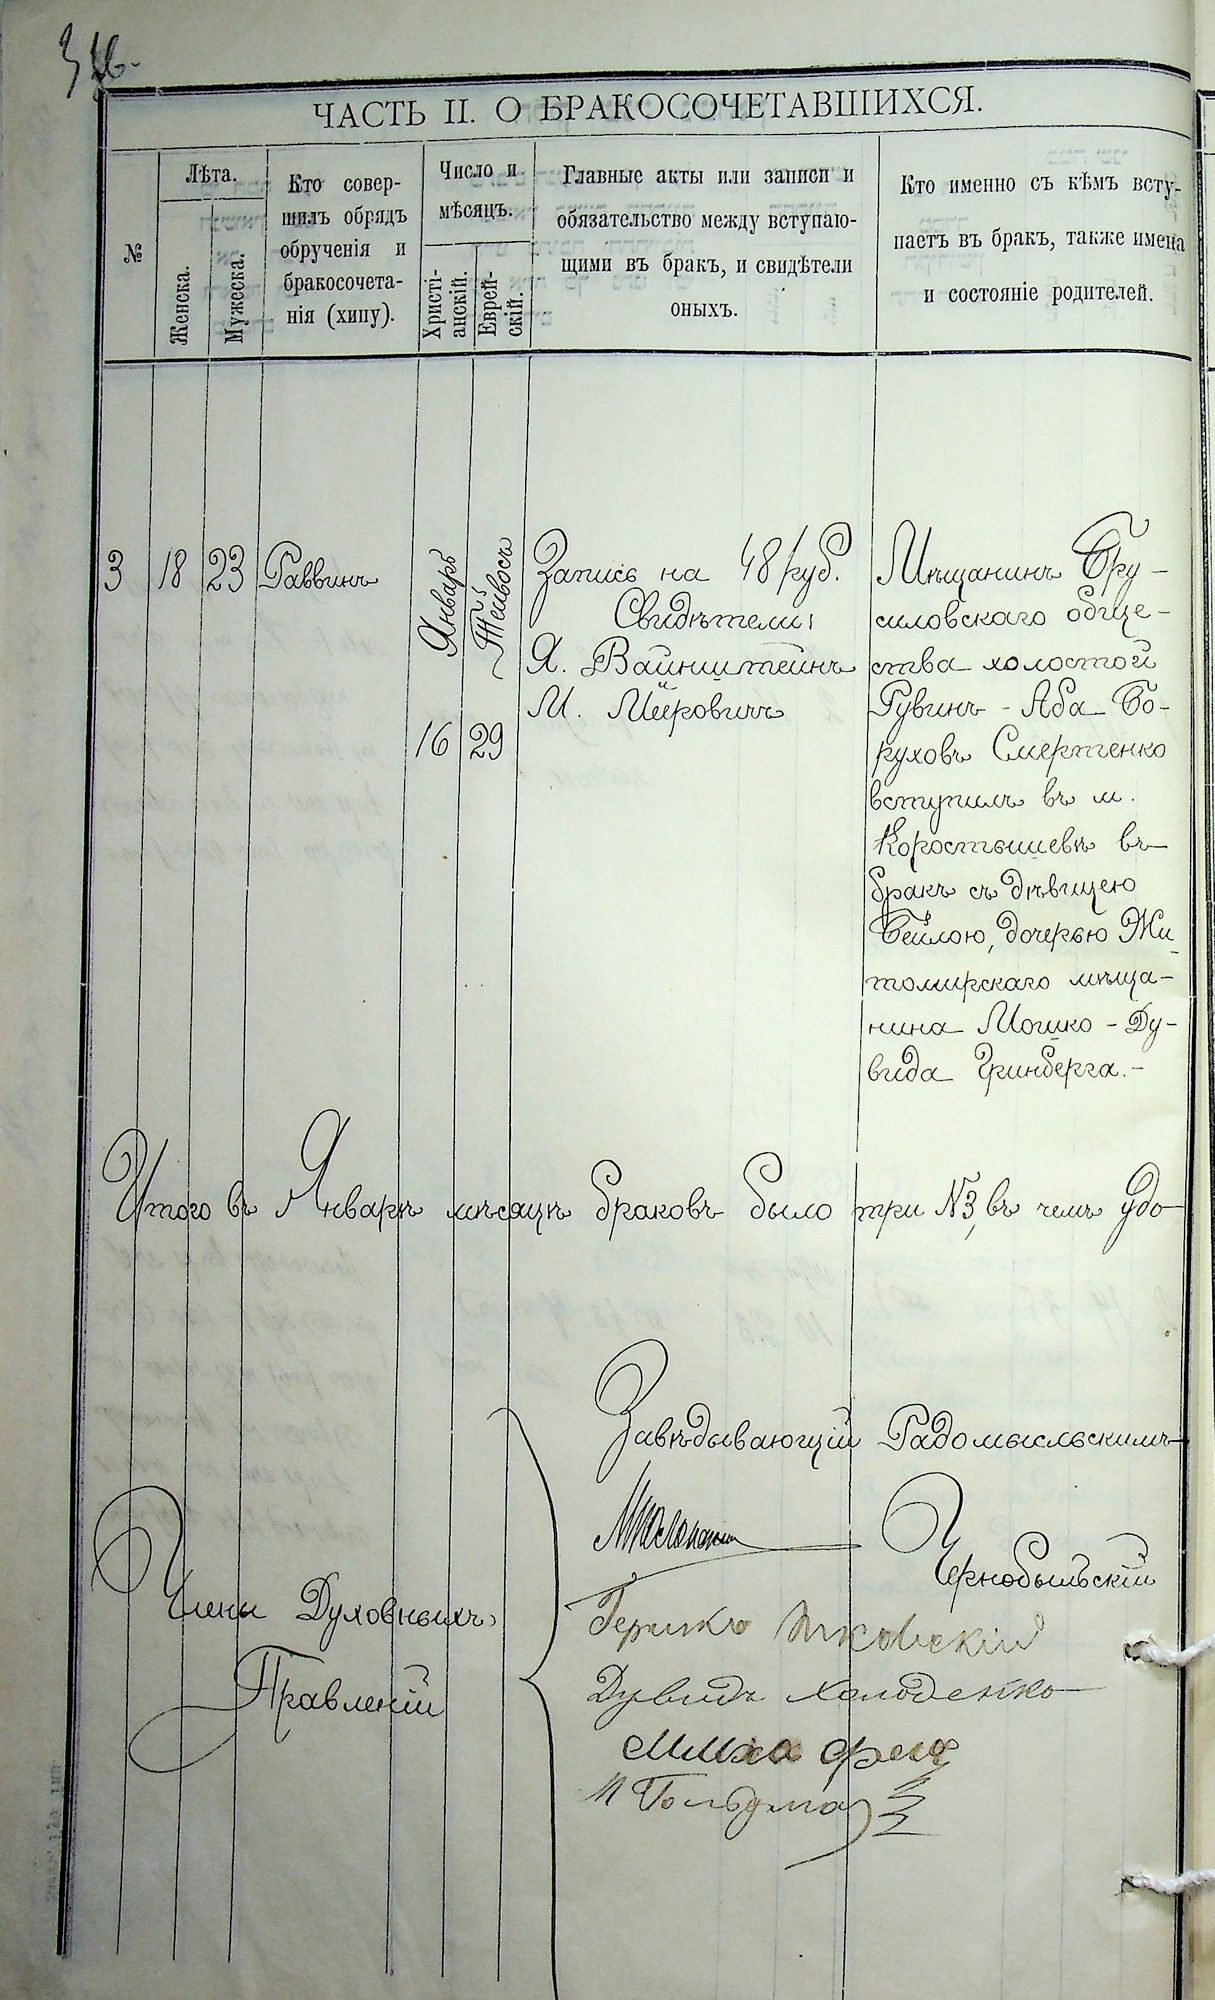 ЧАСТЬ II. О БРАКОСОЧЕТАВШИХСЯ.
№
Лѣта.
Женска.
Мужеска.
Кто совер-
шилъ обрядъ
обрученія и
бракосочета-
нія (хипу).
Число и
мѣсяцъ.
Христі-
анскій.
Еврей-
скій.
Главные акты или записи и
обязательство между вступаю-
щими въ бракъ, и свидѣтели
оныхъ.
Кто именно съ кѣмъ всту-
паетъ въ бракъ, также имена
и состояніе родителей.
3
18
23
Раввинъ
Январь
16
Тейвосъ
29
Запись на 48 руб.
Свидѣтели:
Я. Вайнштейнъ
М. Меёровичъ
Мѣщанинъ Бру-
силовскаго обще-
ства холостой
Рувинъ - Аба Бо-
руховъ Смертенко
вступилъ въ м.
Коростышевѣ въ
бракъ съ дѣвицею
Бейлою, дочерью Жи-
томирскаго мѣща-
нина Мошко - Ду-
вида Гринберга.-
Итого въ Январѣ мѣсяцѣ браковъ было три №3, въ чемъ удо-
Завѣдывающій Радомысльскимъ
Чернобыльскій
Члены Духовныхъ
Правленій
Гершко
Дувидъ Холоденко